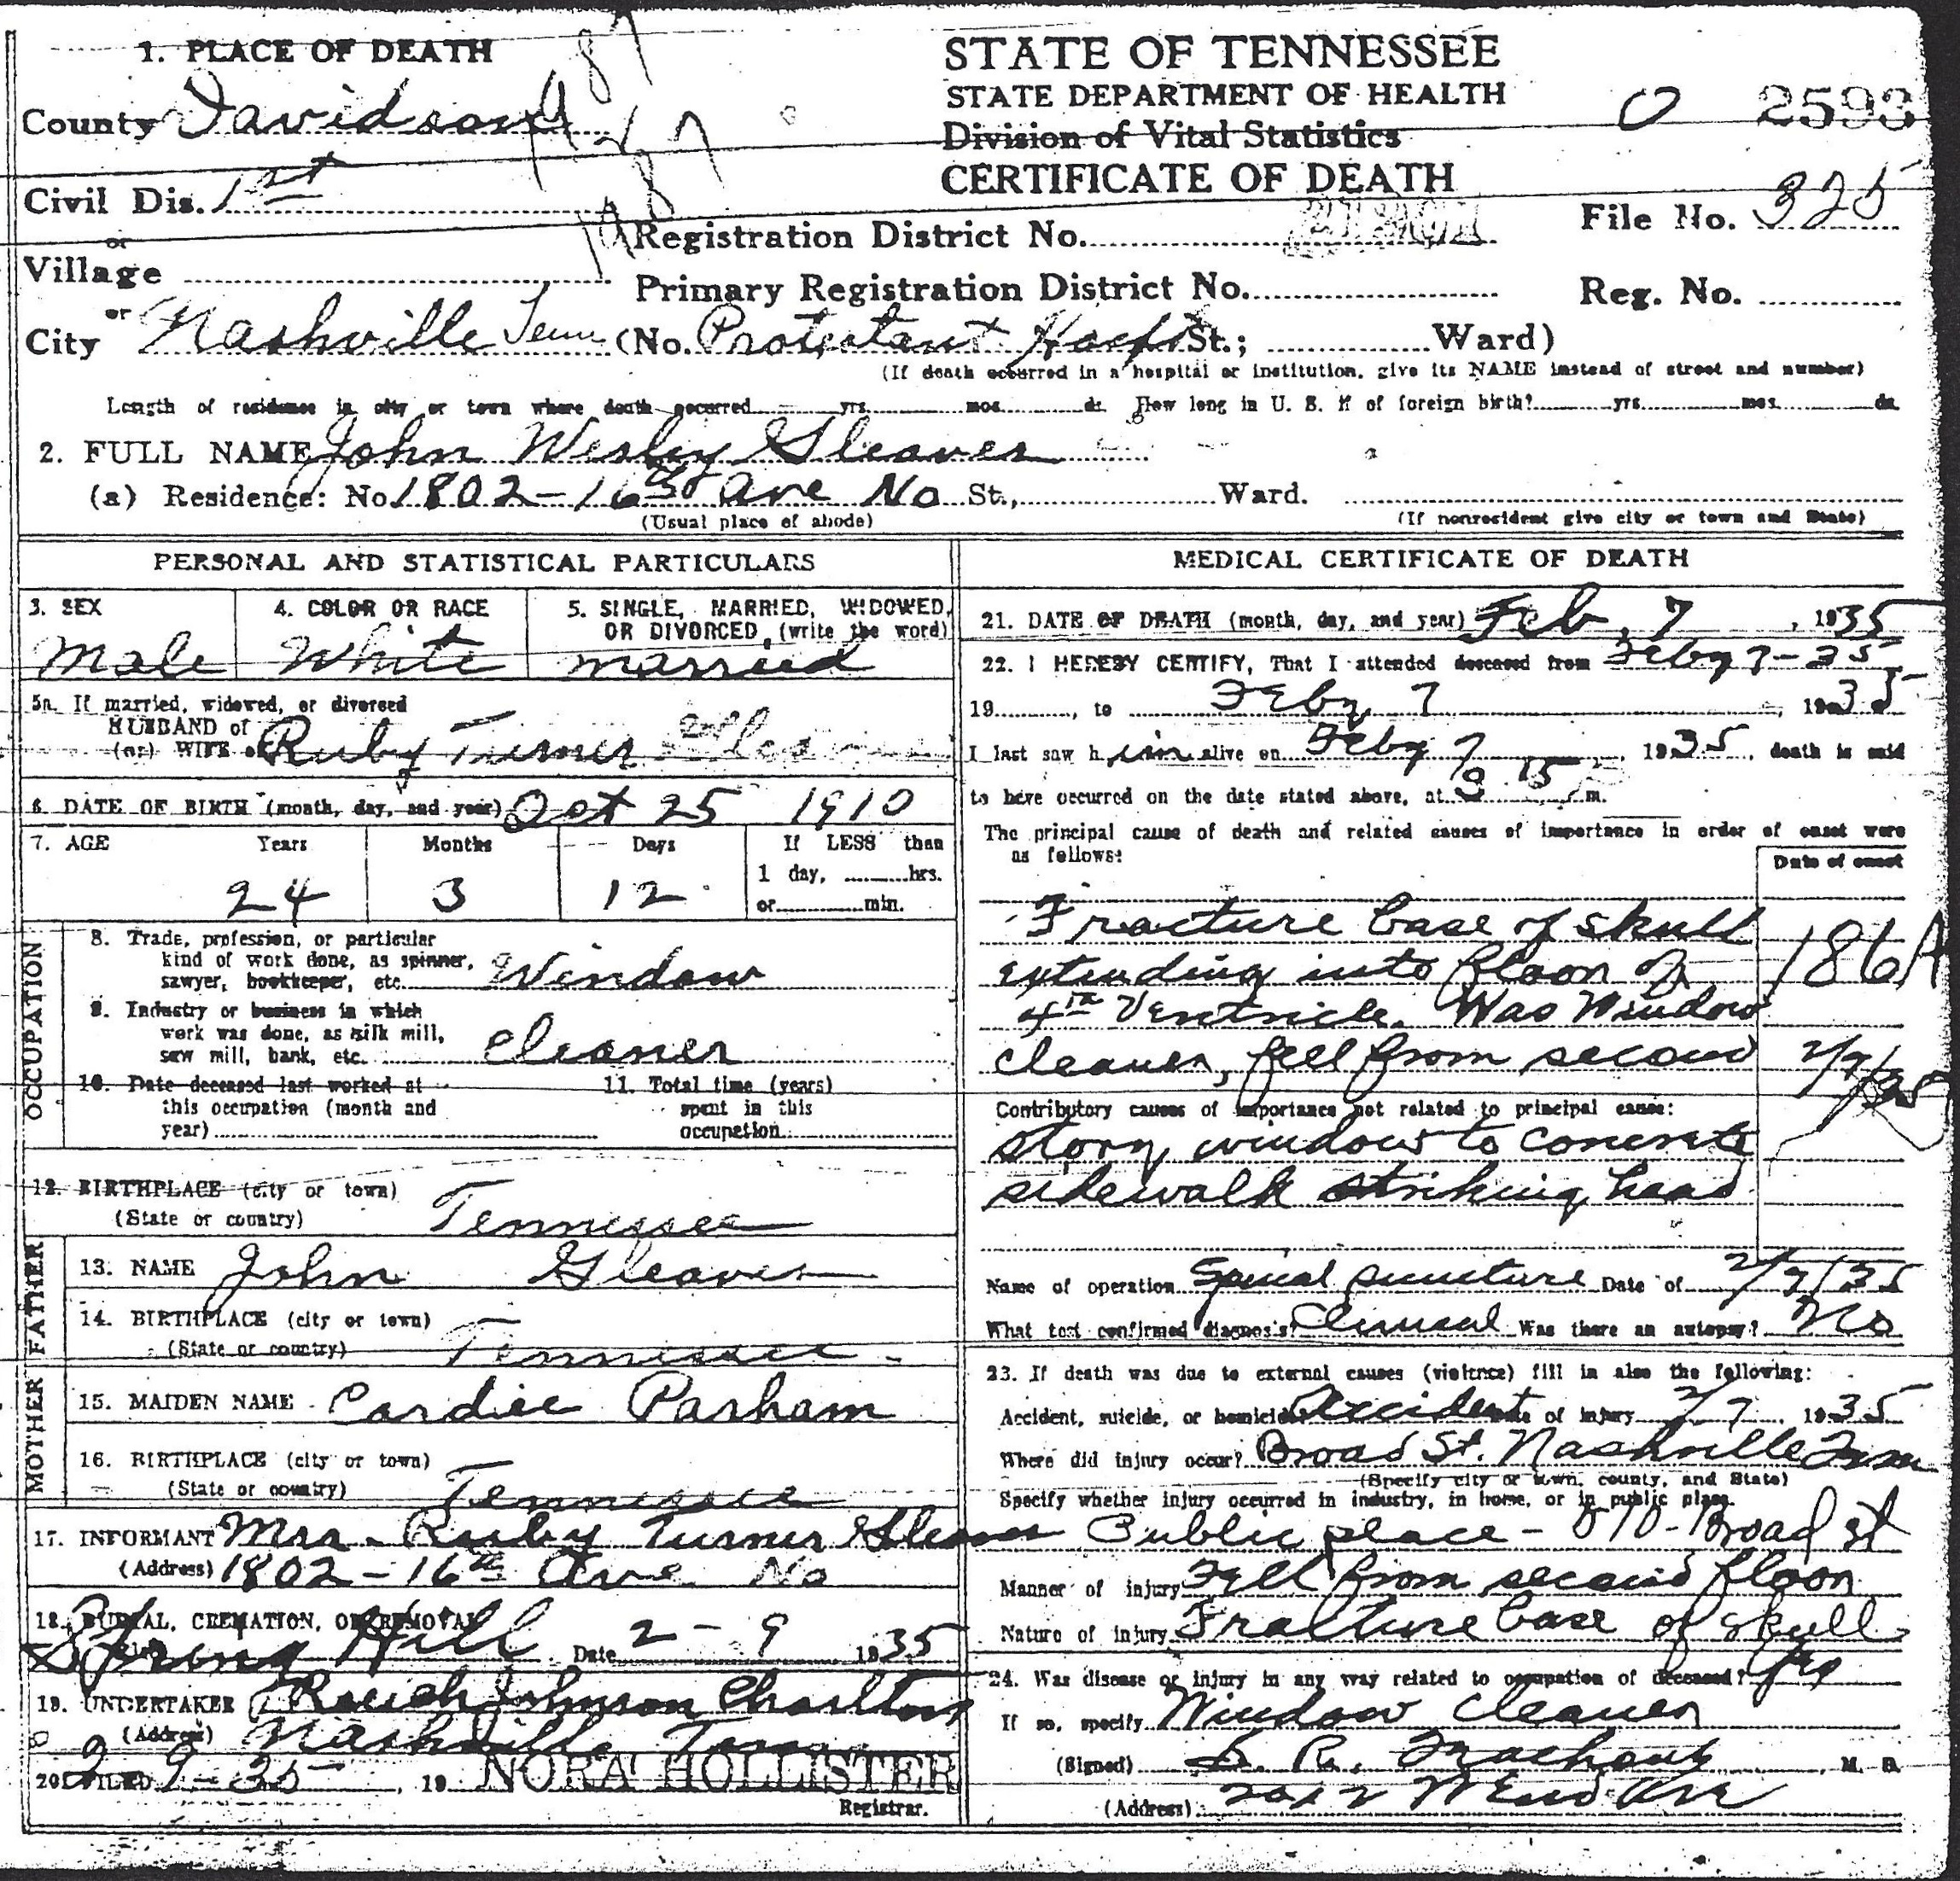 1. PLACE OF DEATH
County Davidson
Civil Dis. 1st
or
Village
or
City Nashville Tenn (No. Protestant Hospt St.; Ward)
STATE OF TENNESSEE
STATE DEPARTMENT OF HEALTH
Division of Vital Statistics
CERTIFICATE OF DEATH
2593
File No. 325
Registration District No.
Primary Registration District No.
Reg. No.
(If death occurred in a hospital or institution, give its NAME instead of street and number)
Length of residence in city or town where death occurred yrs. mos. ds. How long in U. S. if of foreign birth? yrs. mos. ds.
2. FULL NAME John Wesley Gleaves
(a) Residence: No. 1802-16 Ave No St., Ward.
(Usual place of abode) (If nonresident give city or town and State)
PERSONAL AND STATISTICAL PARTICULARS
3. SEX
Male
4. COLOR OR RACE
White
5. SINGLE, MARRIED, WIDOWED, OR DIVORCED (write the word)
married
5a. If married, widowed, or divorced
HUSBAND of
(or) WIFE of Ruby Turner Gleaves
6. DATE OF BIRTH (month, day, and year) Oct 25 1910
7. AGE Years Months Days If LESS than
1 day, hrs.
24 3 12 or min.
OCCUPATION
8. Trade, profession, or particular
kind of work done, as spinner,
sawyer, bookkeeper, etc. Window
9. Industry or business in which
work was done, as silk mill,
saw mill, bank, etc. cleaner
10. Date deceased last worked at
this occupation (month and
year)
11. Total time (years)
spent in this
occupation
12. BIRTHPLACE (city or town)
(State or country) Tennessee
FATHER
13. NAME John Gleaves
14. BIRTHPLACE (city or town)
(State or country) Tennessee
MOTHER
15. MAIDEN NAME Cardie Parham
16. BIRTHPLACE (city or town)
(State or country) Tennessee
17. INFORMANT Mrs. Ruby Turner Gleaves
(Address) 1802-16th Ave No
18. BURIAL, CREMATION, OR REMOVAL
Spring Hill Date 2-9 1935
19. UNDERTAKER Johnson Charlton
(Address) Nashville Tenn
20. FILED 2-9-35, 19 NORA HOLLISTER
Registrar.
MEDICAL CERTIFICATE OF DEATH
21. DATE OF DEATH (month, day, and year) Feb, 7, 1935
22. I HEREBY CERTIFY, That I attended deceased from Feby 7-35
19, to Feby 7, 1935
I last saw him alive on Feby 7, 1935, death is said
to have occurred on the date stated above, at m.
The principal cause of death and related causes of importance in order of onset were
as follows:
Date of onset
Fracture base of skull
extending into floor of
4th Ventricle. Was Window
cleaner, fell from second
186A
2/7/35
Contributory causes of importance not related to principal cause:
story window to concrete
sidewalk striking head
Name of operation Spinal puncture Date of 2/7/35
What test confirmed diagnosis? Clinical Was there an autopsy? No
23. If death was due to external causes (violence) fill in also the following:
Accident, suicide, or homicide? Accident Date of injury 2/7, 1935
Where did injury occur? Broad St. Nashville Tenn
(Specify city or town, county, and State)
Specify whether injury occurred in industry, in home, or in public place.
Public place - Broad St
Manner of injury Fell from second floor
Nature of injury Fracture base of skull
24. Was disease or injury in any way related to occupation of deceased? Yes
If so, specify Window cleaner
(Signed) M. D.
(Address) 2012 W End Ave